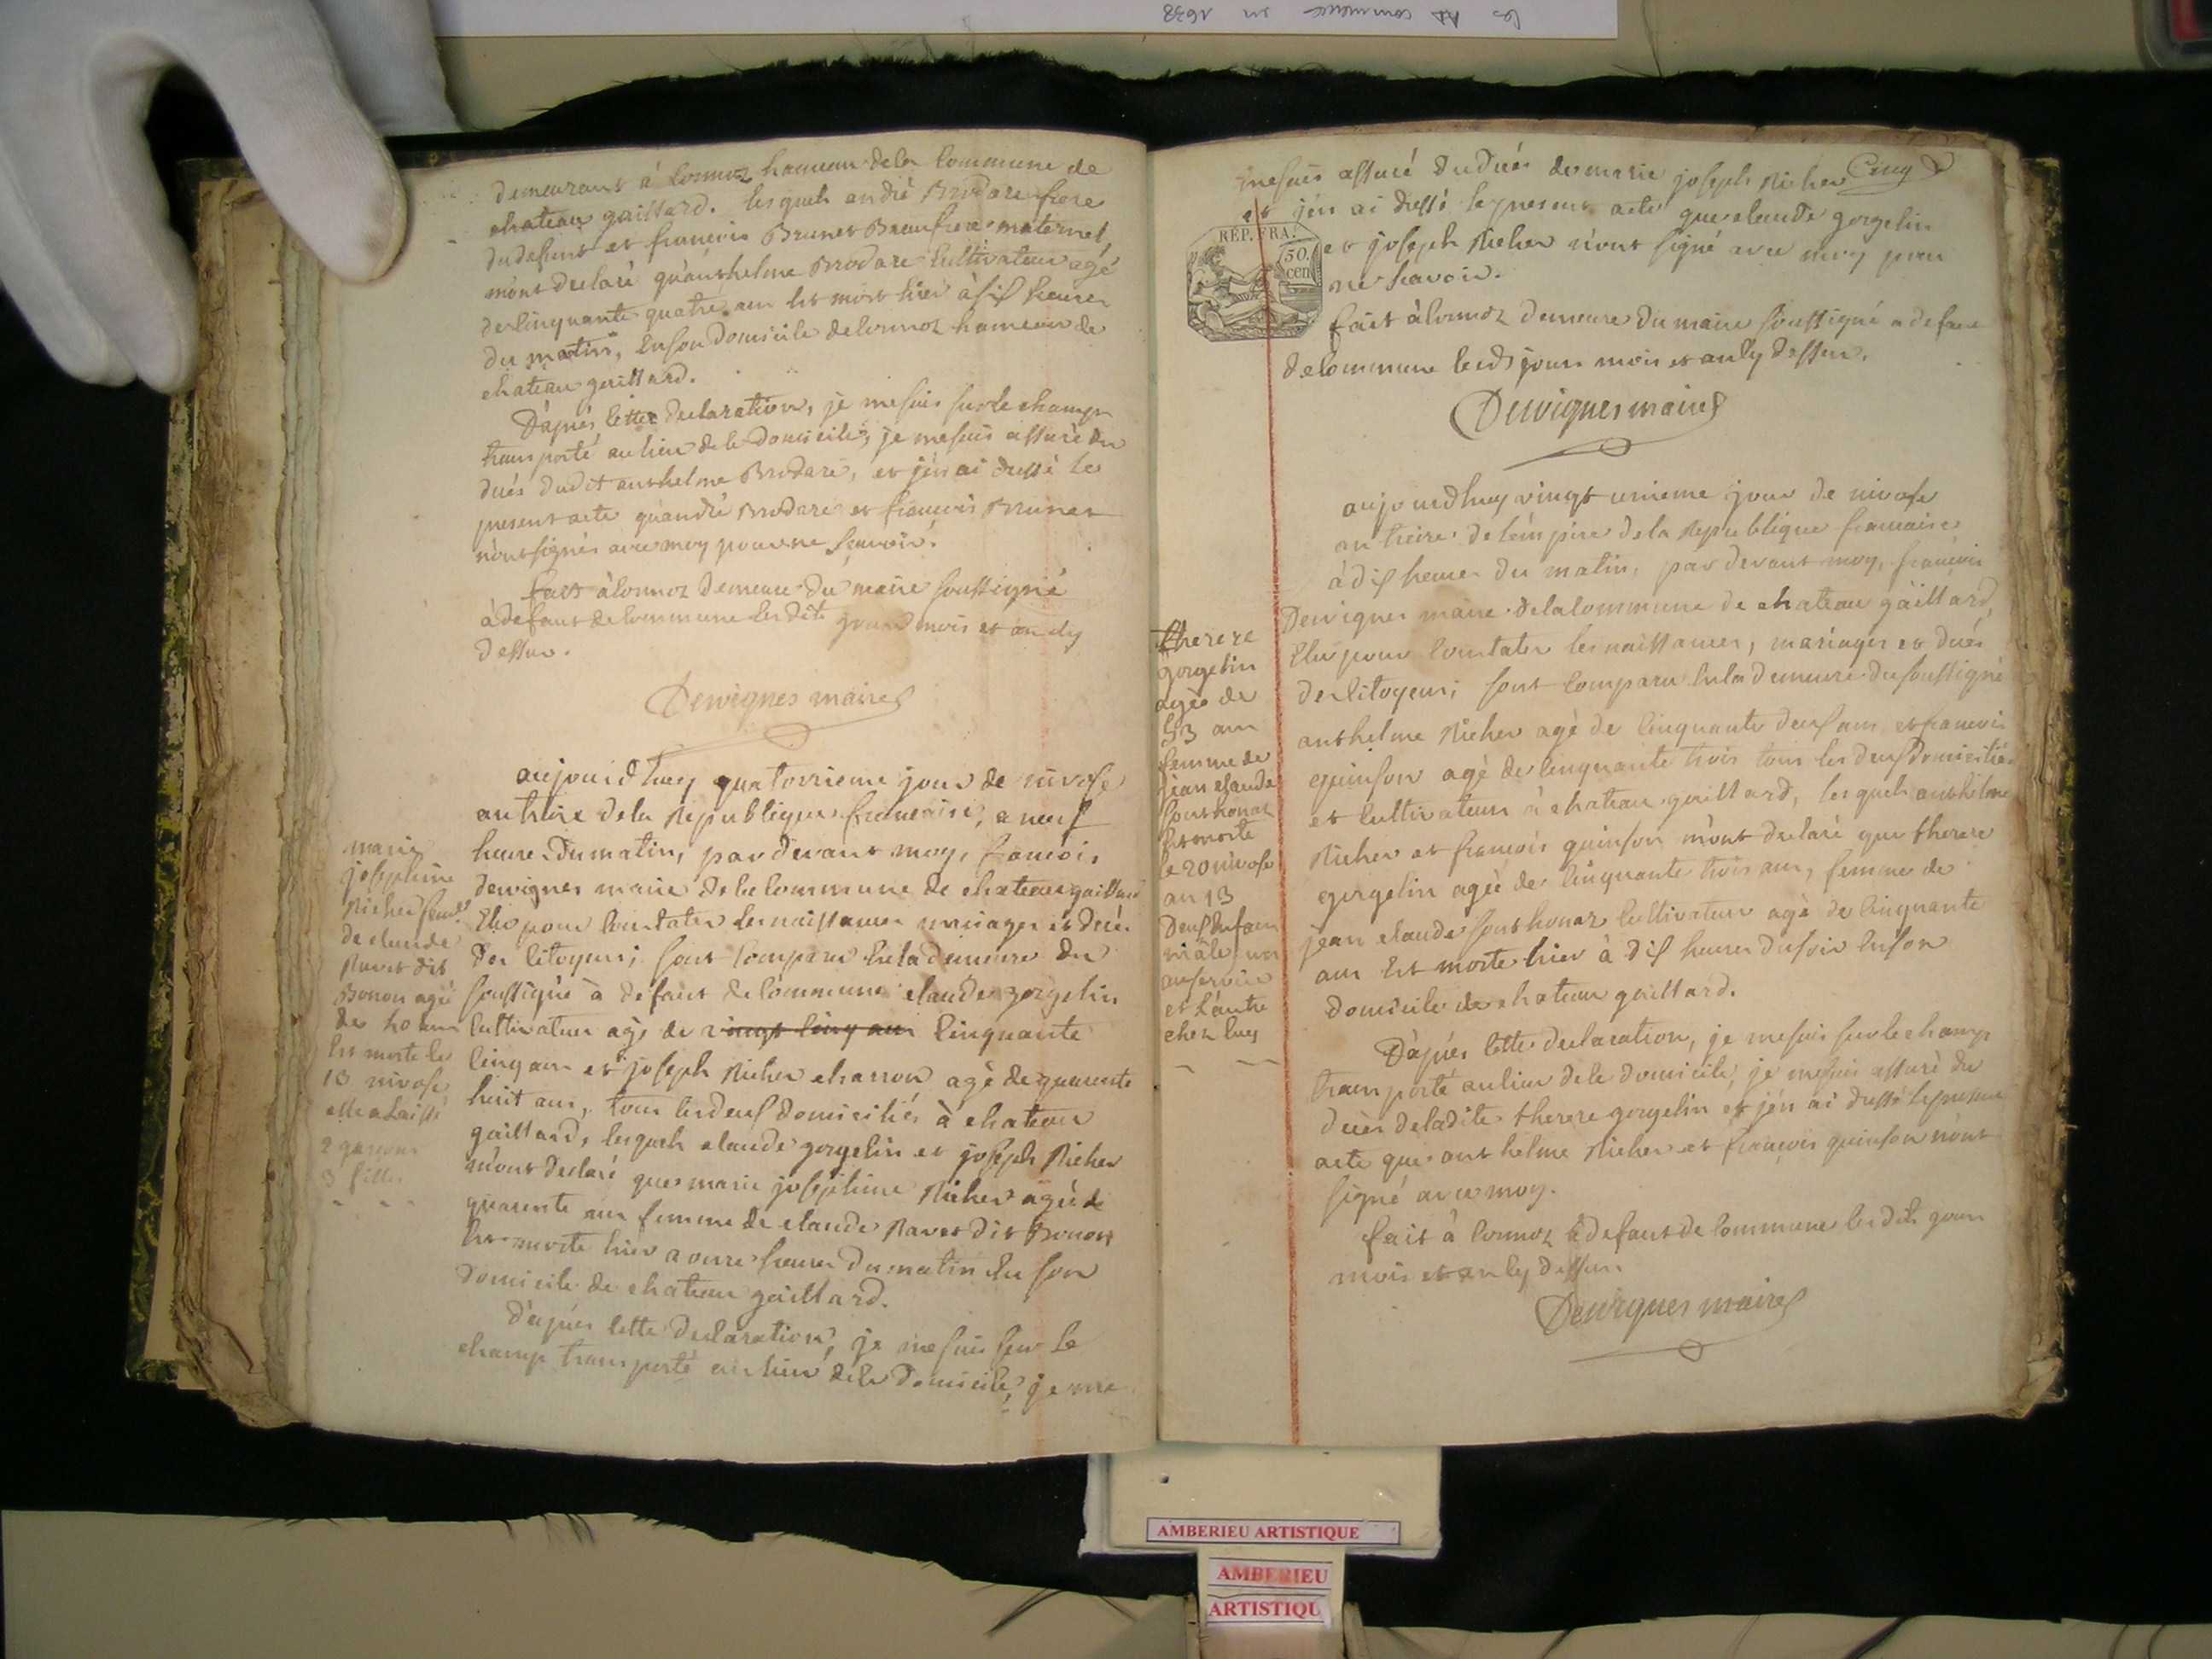 les commence en 1638
demeurant à Cormoz hameau dela Commune de
chateau gaillard. lesquels andré Brodare frere
du defunt et francois Brunet Beaufrere maternel
m'ont declaré qu'anthelme Brodare Cultivateur agé
de Cinquante quatre ans Est mort hier à six heures
du matin, En son Domicile de Cormoz hameau de
chateau gaillard.
D'après Cette declaration, je me suis sur le champ
transporté au lieu de le Domicile, je me suis assuré du
decés dudit anthelme Brodare, et j'én ai dressé le
present acte qu'andré Brodare et francois Brunet
n'ont signés avec moy pour ne savoir.
fait à Cormoz demeure du maire soussigné
à defaut de Commune les dits jours mois et an cy
dessus.
Dervignes maire
aujourd huy quatorzieme jour de nivose
an treize dela Republique francaise, a neuf
heures du matin, par devant moy, francois
dervignes maire de la Commune de chateau gaillard
Elu pour Constater les naissances mariages et decés
des Citoyens; sont Comparu En la demeure du
soussigné à defaut de Commune Claude gorgelin
Cultivateur agé de vingt cinq ans Cinquante
Cinq ans et joseph Richer charron agé de quarente
huit ans, tous les deux domiciliés à chateau
gaillard, lesquels claude gorgelin et joseph Richer
m'ont declaré que marie josephine Richer agée de
quarente ans femme de claude Ravet dit Bonon
Est morte hier a onze heures du matin En son
domicile de chateau gaillard.
D'après Cette declaration, je me suis sur le
champ transporté au lieu de le domicile, je me
marie
josephine
Richer fem.
de claude
Ravet dit
Bonon agé
de 40 ans
Est morte le
13 nivose
elle a Laissé
2 garcons
3 filles
me suis assuré du decés de marie joseph Richer
Cinq
et jén ai dressé le present acte que claude gorgelin
REP. FRA.
50. cen
et joseph Richer n'ont signé avec moy pour
ne savoir.
fait à Cormoz demeure du maire soussigné a defaut
de Commune les dits jours mois et an cy dessus.
Dervignes maire
aujourdhuy vingt unieme jour de nivose
an treize de lémpire de la Republique francaise
à dix heures du matin, par devant moy, francois
Dervignes maire de la Commune de chateau gaillard,
Elu pour Constater les naissances, mariages et decés
des Citoyens; sont Comparu En la demeure du soussigné
anthelme Richer agé de Cinquante deux ans et francois
quinson agé de Cinquante trois tous les deux domiciliés
et Cultivateurs à chateau gaillard, lesquels anthelme
Richer et francois quinson m'ont declaré que therese
gorgelin agée de Cinquante trois ans, femme de
jean claude southonaz Cultivateur agé de Cinquante
ans Est morte hier à dix heures du soir En son
domicile de chateau gaillard.
D'après Cette declaration, je me suis sur le champ
transporté au lieu de le domicile, je me suis assuré du
decés de ladite therese gorgelin et jén ai dressé le present
acte que anthelme Richer et francois quinson n'ont
signé avec moy.
fait à Cormoz à defaut de Commune les dits jours
mois et an cy dessus
Dervignes maire
therese
gorgelin
agée de
53 ans
femme de
jean claude
southonaz
Est morte
le 20 nivose
an 13
Deux Enfans
mâle un
au service
et l'autre
chez luy
AMBERIEU ARTISTIQUE
AMBERIEU
ARTISTIQU